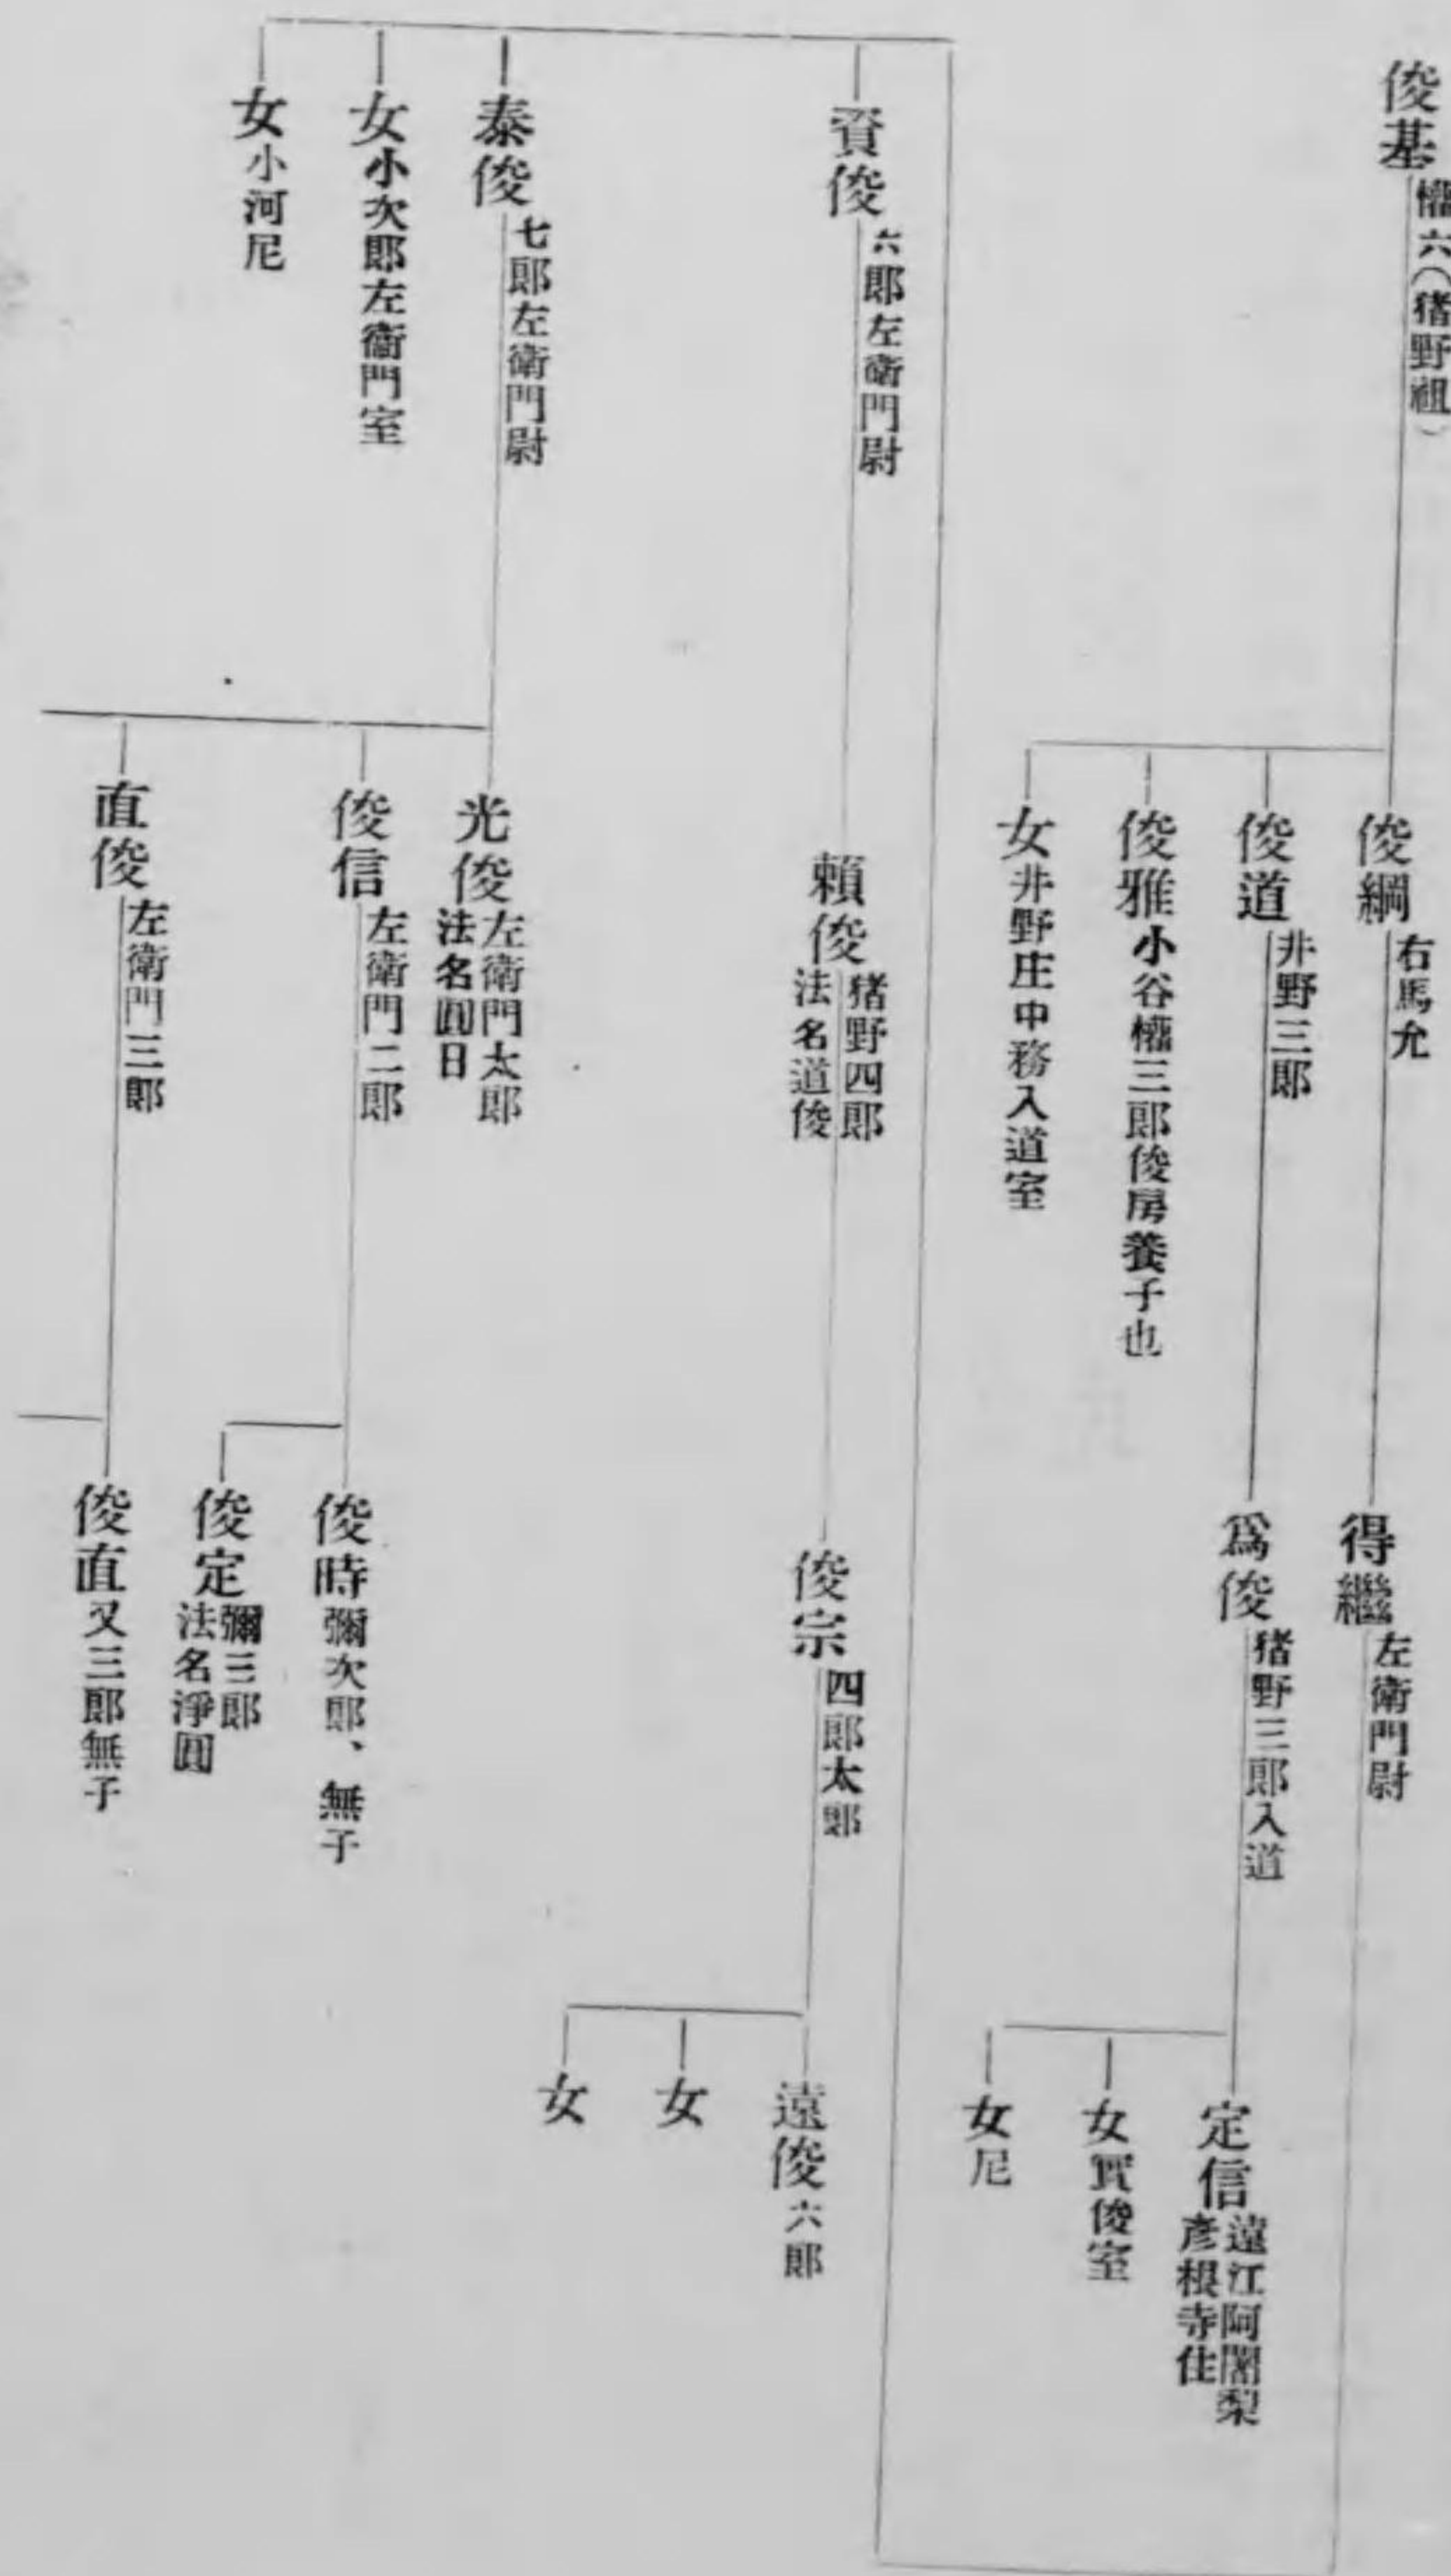 俊基 㩲六(猪野祖)
俊綱 右馬允
得繼 左衛門尉
俊道 井野三郎
爲俊 猪野三郎入道
定信 遠江阿闍梨
彦根寺住
女 實俊室
女 尼
俊雅 小谷㩲三郎俊房養子也
女 井野庄中務入道室
資俊 六郎左衛門尉
賴俊 猪野四郎
法名道俊
俊宗 四郎太郎
遠俊 六郎
女
女
泰俊 七郎左衛門尉
光俊 左衛門太郎
法名圓日
俊信 左衛門二郎
俊時 彌次郎、無子
俊定 彌三郎
法名淨圓
直俊 左衛門三郎
俊直 又三郎無子
女 小次郎左衛門室
女 小河尼